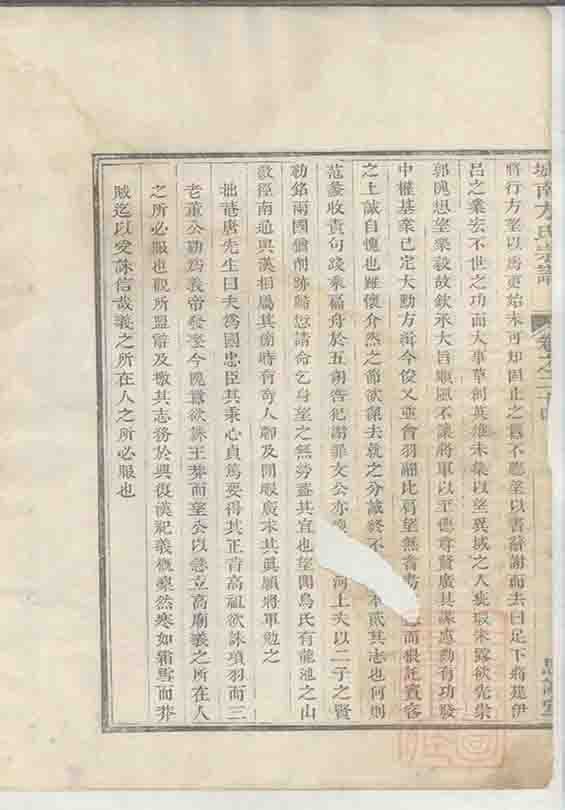 城南方氏宗譜 卷之二十四
將行方望以爲更始未可知固止之囂不聽望以書辭謝而去曰足下將建伊
呂之業宏不世之功而大事草創英雄未集以望異域之人疵瑕未露欲先崇
郭隗想望樂毅故欽承大旨順風不讓將軍以至德尊賢廣其謀慮動有功發
中權基業已定大勳方緝今俊乂並會羽翮比肩望無耆耇 而猥託賓客
之上誠自愧也雖懷介然之節欲潔去就之分誠終不 本貳其志也何則
范蠡收責句踐乘偏舟於五湖咎犯謝罪文公亦 河上夫以二子之賢
勒銘兩國猶削跡歸愆請命乞身望之無勞蓋其宜也望聞烏氏有龍池之山
微徑南通與漢相屬其傍時有奇人聊及閒暇廣求其真願將軍勉之
拙菴唐先生曰夫爲國忠臣其秉心貞篤要得其正昔高祖欲誅項羽而三
老董公勸爲義帝發喪今隗囂欲誅王莽而望公以急立高廟義之所在人
之所必服也觀所盟辭及檄其志務於興復漢祀義慨凜然寒如霜雪而莽
賊迄以受誅信哉義之所在人之所必服也